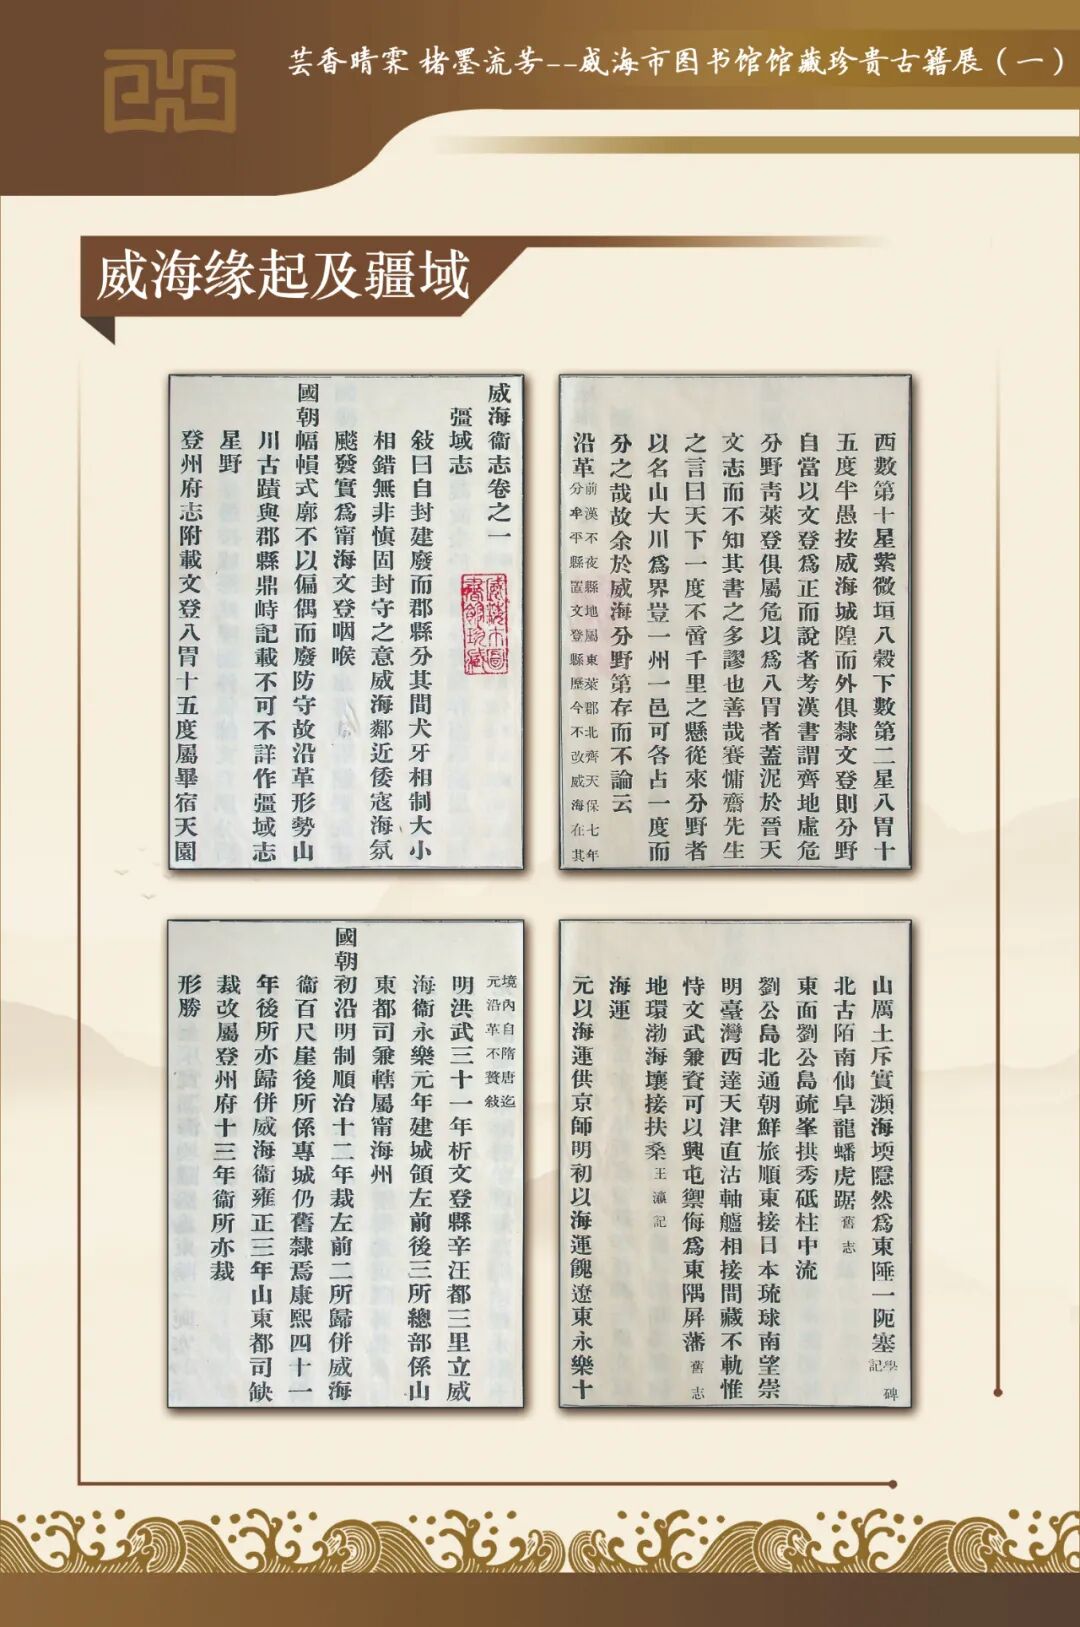 芸香晴霖 楮墨流芳--威海市图书馆馆藏珍贵古籍展（一）
威海缘起及疆域
威海衞志卷之一
疆域志
敍曰自封建廢而郡縣分其間犬牙相制大小
相錯無非慎固封守之意威海鄰近倭寇海氛
颷發實爲甯海文登咽喉
國朝幅幀式廓不以偏偶而廢防守故沿革形勢山
川古蹟與郡縣鼎峙記載不可不詳作疆域志
星野
登州府志附載文登八胃十五度屬畢宿天園
威海市圖書館珍藏
西數第十星紫微垣八穀下數第二星八胃十
五度半愚按威海城隍而外俱隸文登則分野
自當以文登爲正而說者考漢書謂齊地虛危
分野青萊登俱屬危以爲八胃者蓋泥於晉天
文志而不知其書之多謬也善哉賽慵齋先生
之言曰天下一度不啻千里之懸從來分野者
以名山大川爲界豈一州一邑可各占一度而
分之哉故余於威海分野第存而不論云
沿革
前漢不夜縣地屬東萊郡北齊天保七年
分牟平縣置文登縣歷今不改威海在其
境內自隋唐迄
元沿革不贅敍
明洪武三十一年析文登縣辛汪都三里立威
海衞永樂元年建城領左前後三所總部係山
東都司兼轄屬甯海州
國朝初沿明制順治十二年裁左前二所歸併威海
衞百尺崖後所係專城仍舊隸焉康熙四十一
年後所亦歸併威海衞雍正三年山東都司缺
裁改屬登州府十三年衞所亦裁
形勝
山厲土斥實瀕海堧隱然爲東陲一阨塞學碑記
北古陌南仙阜龍蟠虎踞舊志
東面劉公島疏峯拱秀砥柱中流
劉公島北通朝鮮旅順東接日本琉球南望崇
明臺灣西達天津直沽軸艫相接間藏不軌惟
恃文武兼資可以興屯禦侮爲東隅屏藩舊志
地環渤海壤接扶桑王瀛記
海運
元以海運供京師明初以海運餽遼東永樂十